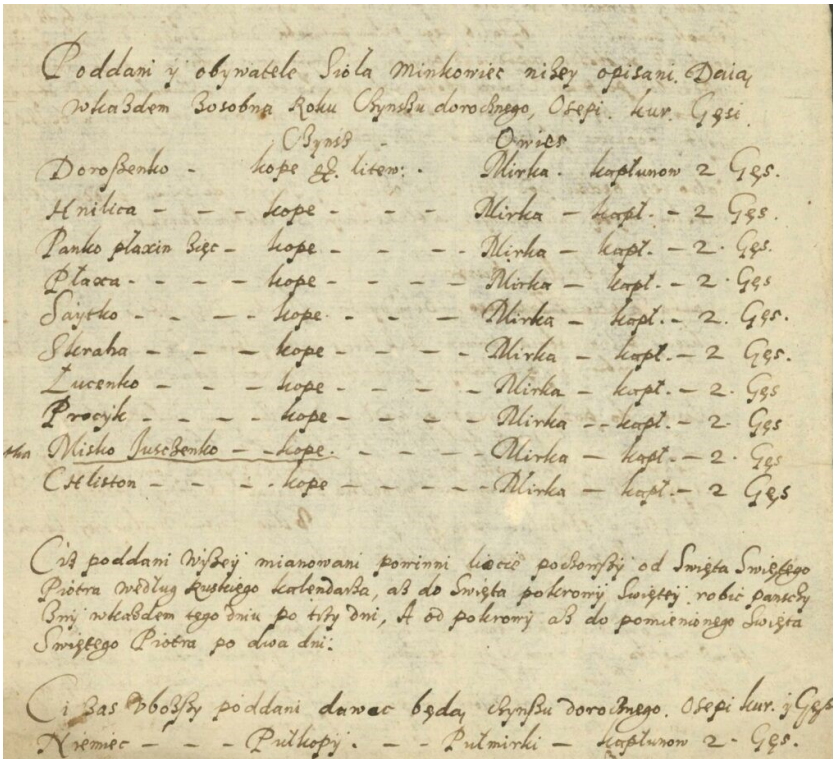 Poddani y obywatele Sioła Minkowiec niżey opisani. Daią,
wkażdem zosobna Roku Czynszu dorocznego, Osepi. kur. Gęsi.
Czynsz Owies
Doroszenko - kope gr. litew: - Mirka - kapłunow 2 Gęs.
Hnilica - - - kope - - - - Mirka - kapł. - 2 Gęs.
Panko płaxin zięc - kope - - - - Mirka - kapł. - 2. Gęs.
Płaxa - - - - kope - - - - Mirka - kapł. - 2. Gęs
Saytko - - - - kope - - - - Mirka - kapł. - 2. Gęs.
Skraha - - - kope - - - - Mirka - kapł. - 2 Gęs.
Łucenko - - - kope - - - - Mirka - kapł. - 2 Gęs
Procyk - - - - kope - - - - Mirka - kapł. - 2. Gęs
Misko Juszczenko - - kope. - - - - Mirka - kapł. - 2 Gęs
CHliston - - - - kope - - - - - Mirka - kapł. - 2 Gęs
Ciż poddani wyszey mianowani powinni liecie poczowszy od Swięta Swiętego
Piotra według Ruskiego kalendarza, aż do Swięta pokrowy Swiętey robic panszczy
zny wkażdem tego dniu po trzy dni, A od pokrowy aż do pomienionego Swięta
Swiętego Piotra po dwa dni:
Ci zas vbozszy poddani dawac będą, czynszu dorocznego. Osepi kur. y Gęs
Niemiec - - - Pułkopy. - - Pułmirki - kapłunow 2 - Gęs.